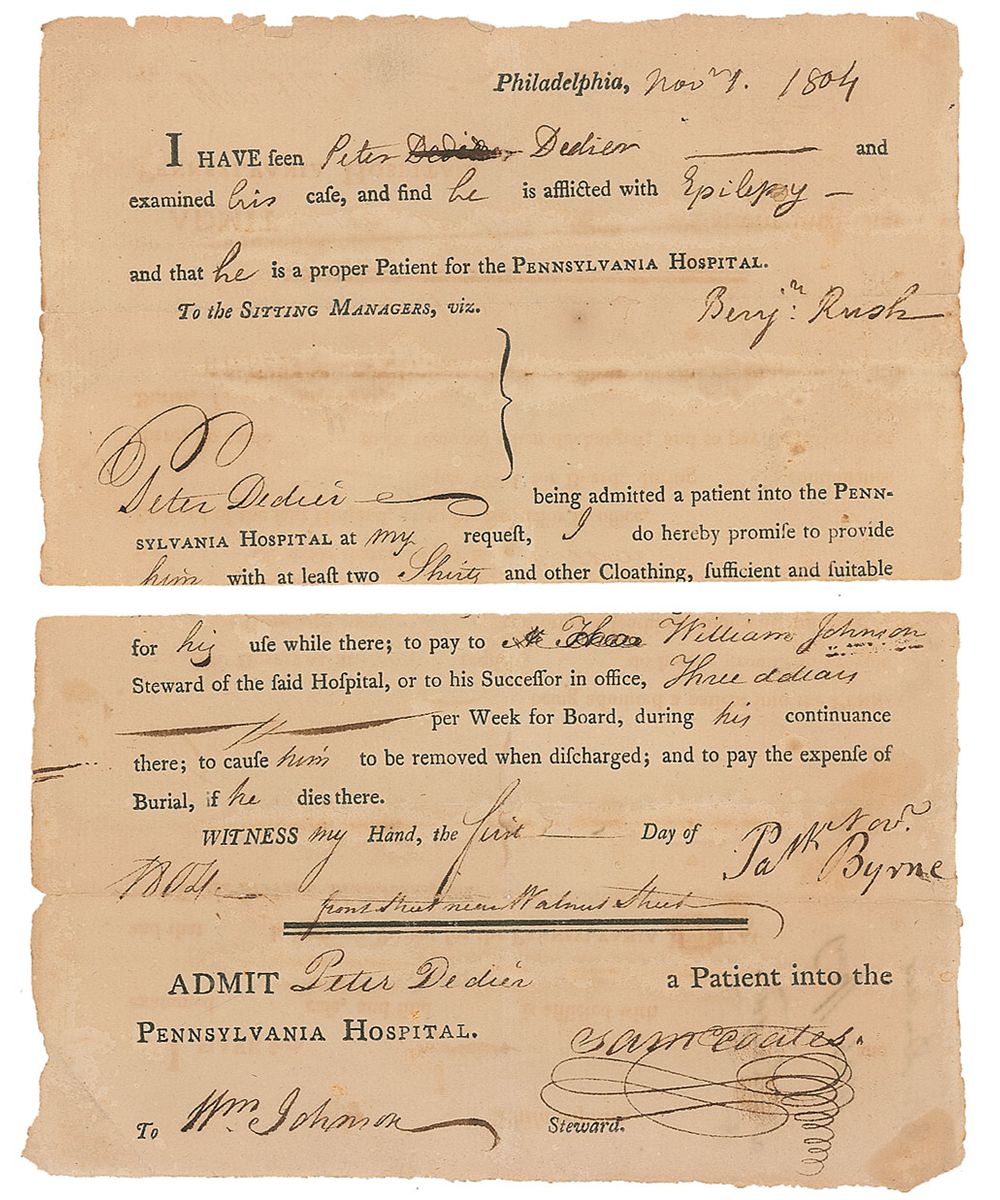 Philadelphia, Novr 1. 1804
I HAVE ſeen Peter Dedier and
examined his caſe, and find he is afflicted with Epilepsy —
and that he is a proper Patient for the PENNSYLVANIA HOSPITAL.
To the SITTING MANAGERS, viz.
Benjn: Rush
Peter Dedier being admitted a patient into the PENN-
SYLVANIA HOSPITAL at my requeſt, I do hereby promiſe to provide
him with at leaſt two Shirts and other Cloathing, ſufficient and ſuitable
for his uſe while there; to pay to William Johnson
Steward of the ſaid Hoſpital, or to his Succeſſor in office, Three dolars
per Week for Board, during his continuance
there; to cauſe him to be removed when diſcharged; and to pay the expenſe of
Burial, if he dies there.
WITNESS my Hand, the first Day of Novr.
Patk Byrne
front street near Walnut Street
ADMIT Peter Dedier a Patient into the
PENNSYLVANIA HOSPITAL.
Saml Coates.
To Wm. Johnson Steward.